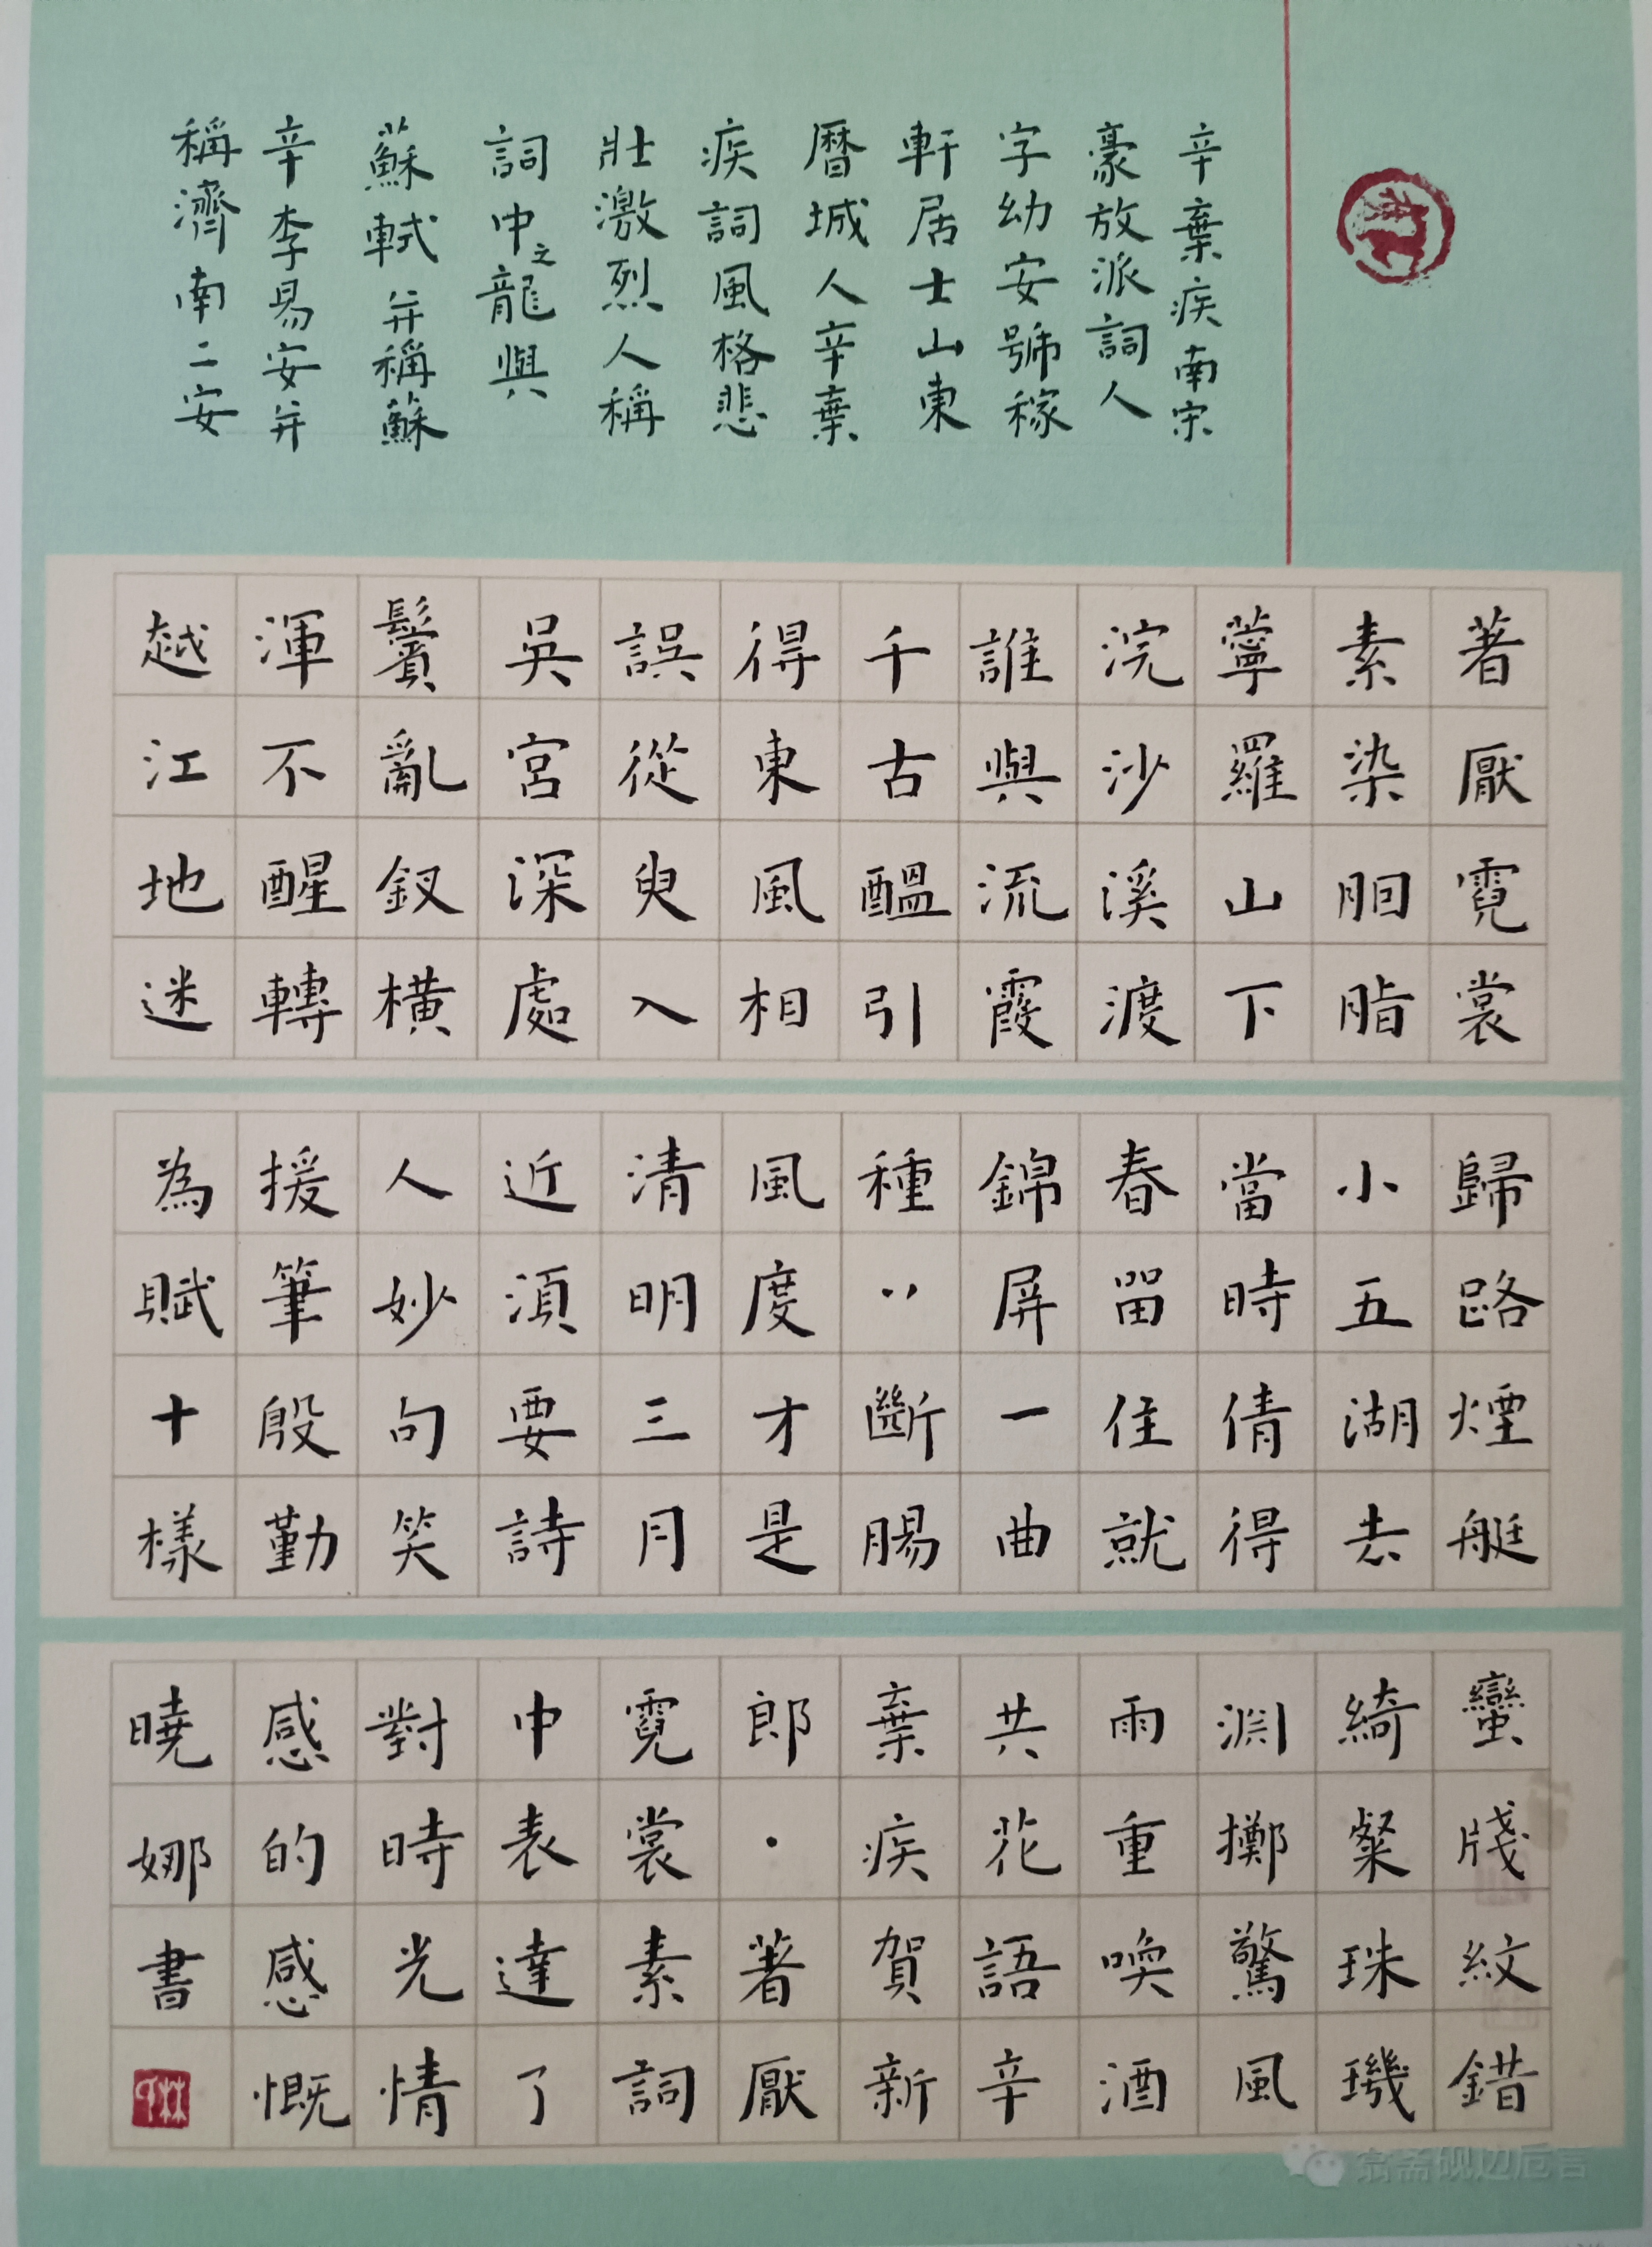 辛棄疾南宋
豪放派詞人
字幼安號稼
軒居士山東
曆城人辛棄
疾詞風格悲
壯激烈人稱
詞中之龍與
蘇軾并稱蘇
辛李易安并
稱濟南二安
著厭霓裳
素染胭脂
薴羅山下
浣沙溪渡
誰與流霞
千古醞引
得東風相
誤從臾入
吳宮深處
鬢亂釵橫
渾不醒轉
越江地迷
歸路煙艇
小五湖去
當時倩得
春留住就
錦屏一曲
種丷斷腸
風度才是
清明三月
近須要詩
人妙句笑
援筆殷勤
為賦十樣
蠻牋紋錯
綺粲珠璣
淵擲驚風
雨重喚酒
共花語辛
棄疾賀新
郎·著厭
霓裳素詞
中表達了
對時光情
感的感慨
曉娜書
翕斋砚边卮言